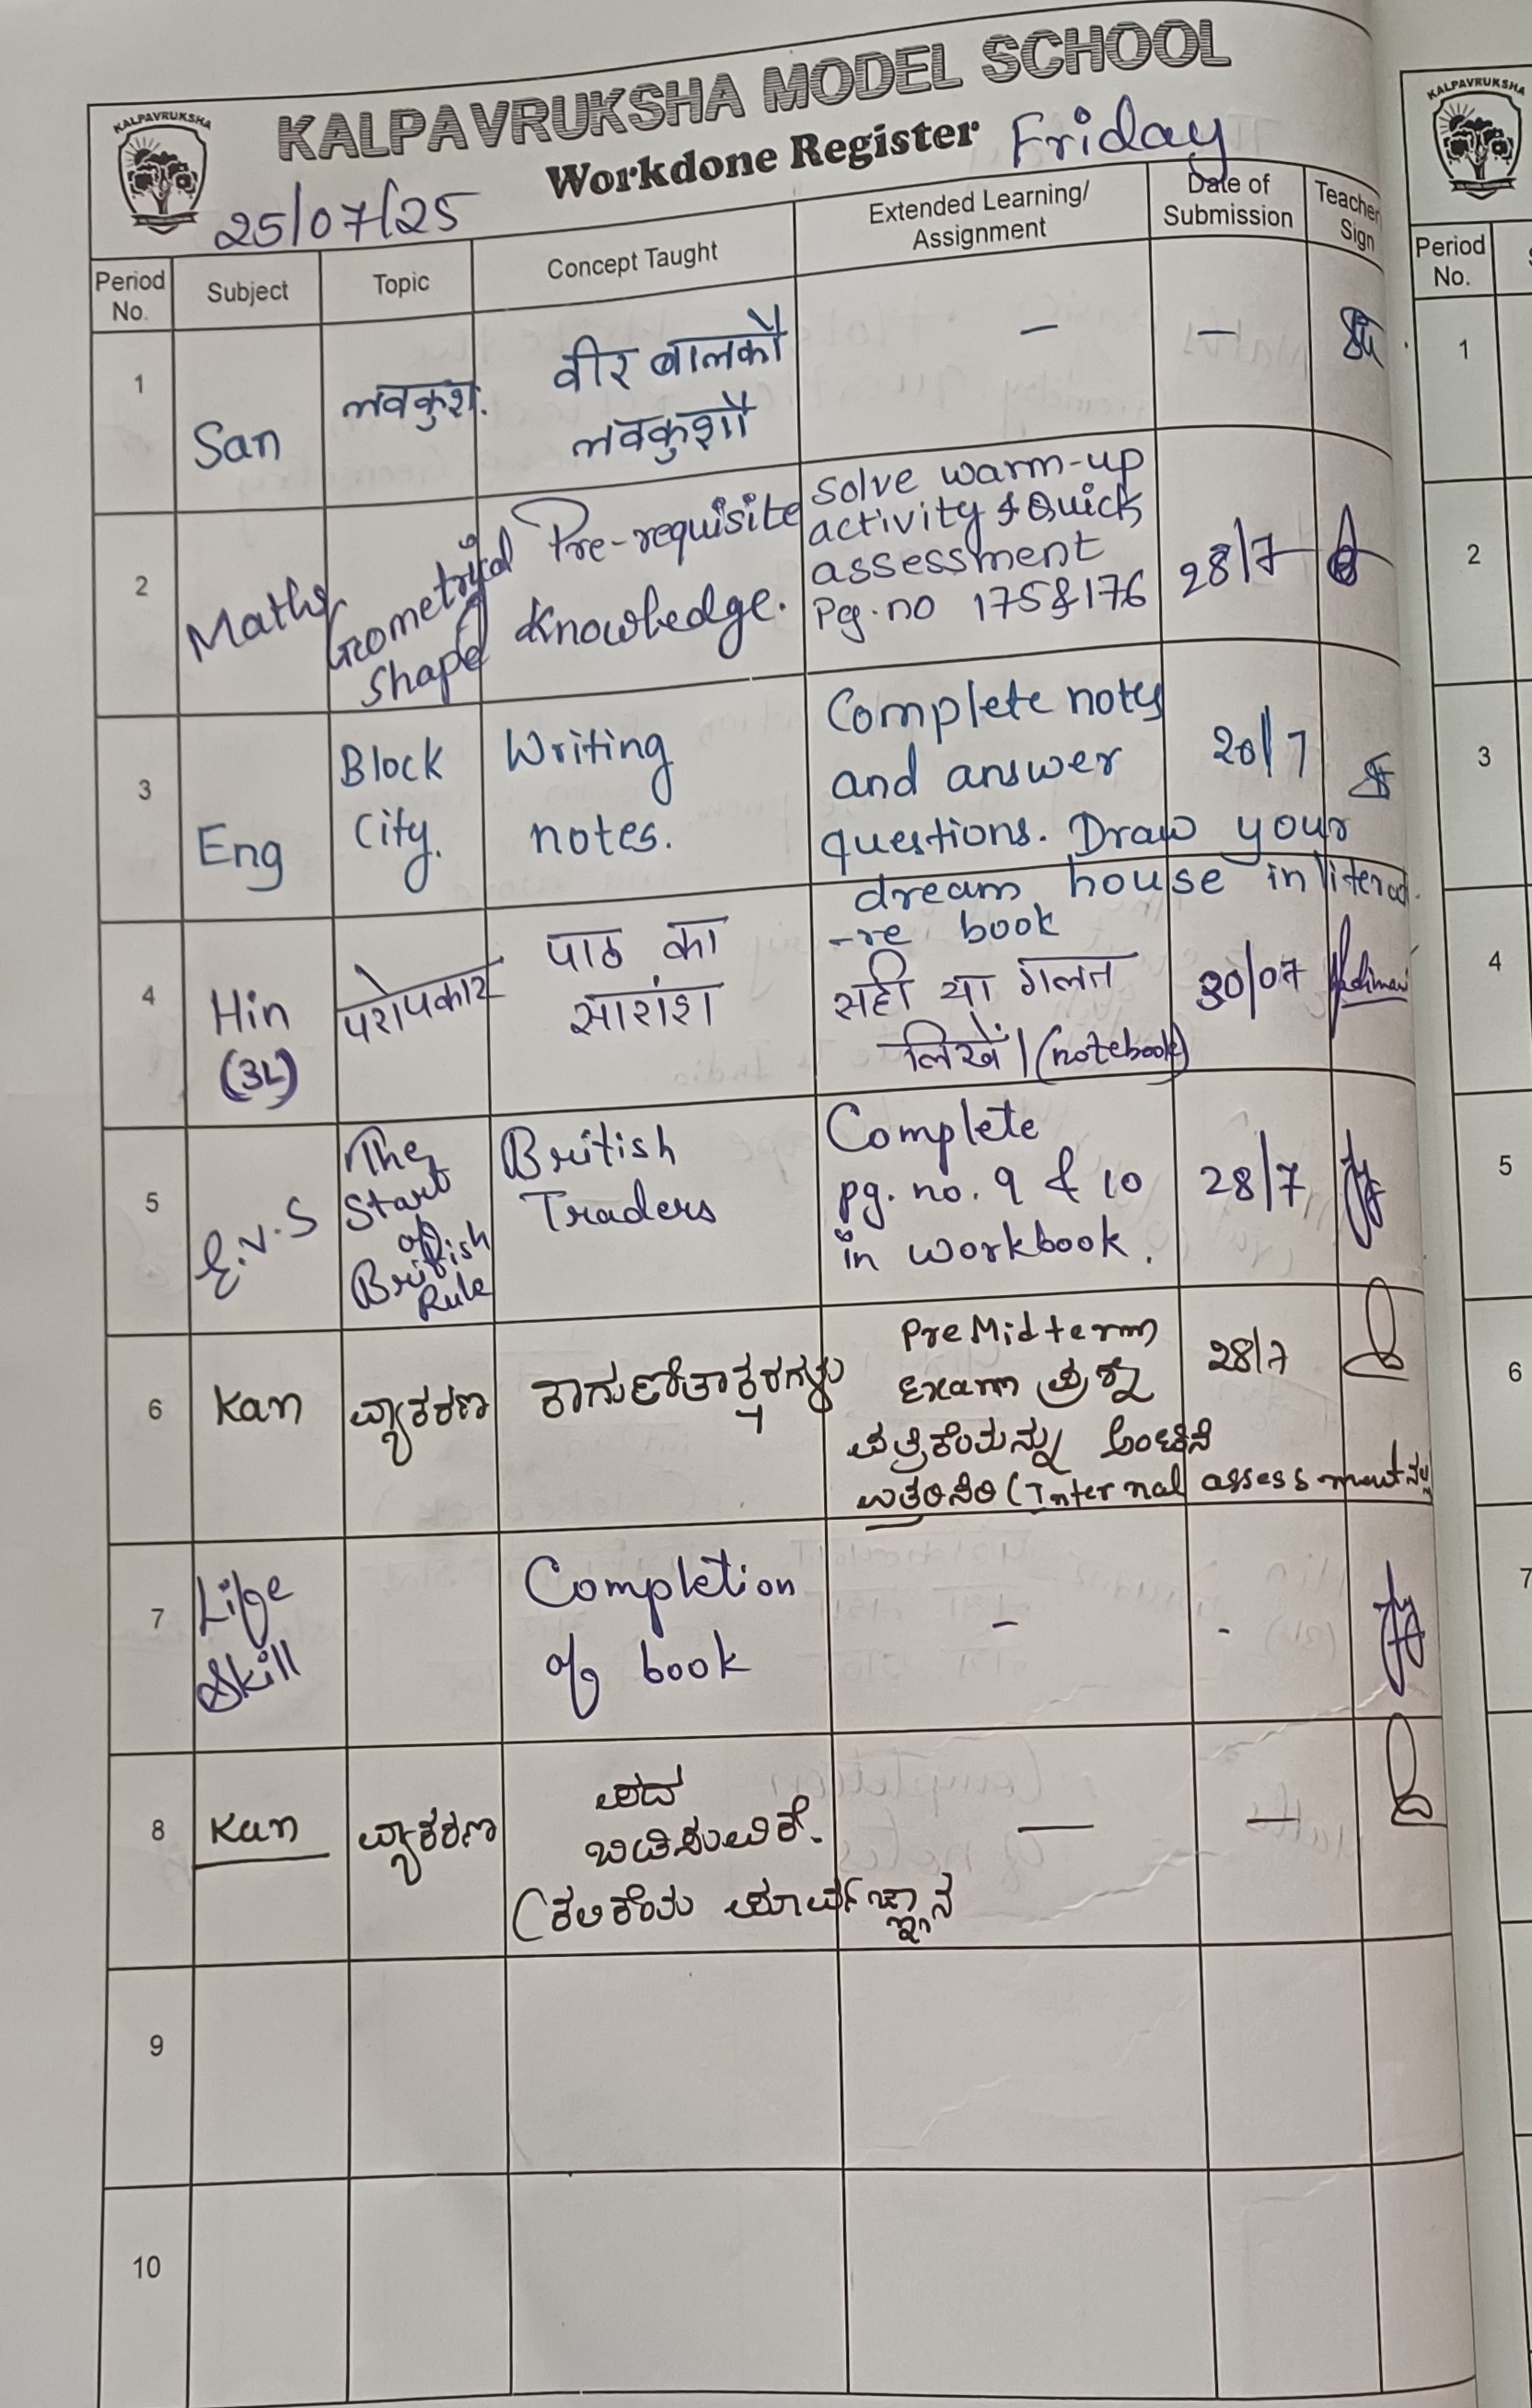 KALPAVRUKSHA
KALPAVRUKSHA MODEL SCHOOL
Workdone Register Friday
25/07/25
Period No.
Subject
Topic
Concept Taught
Extended Learning/
Assignment
Date of
Submission
Teacher
Sign
1
San
लवकुश.
वीर बालकौ
लवकुशौ
–
–
2
Maths
Geometrical
Shape
Pre-requisite
Knowledge.
Solve warm-up
activity & Quick
assessment
Pg.no 175&176
28/7
3
Eng
Block
City.
Writing
notes.
Complete notes
and answer
questions. Draw your
dream house in literat
-re book
4
Hin
(3L)
परोपकार
पाठ का
सारांश
सही या गलत
लिखें। (notebook)
30/07
5
E.V.S
The
Start
of
British
Rule
British
Traders
Complete
pg. no. 9 & 10
in workbook.
28/7
6
Kan
ವ್ಯಾಕರಣ
ಕಾಗುಣಿತಾಕ್ಷರಗಳು
PreMidterm
Exam ಪ್ರಶ್ನ
ಪತ್ರಿಕೆಯನ್ನು ಅಂಟಿಸಿ
ಉತ್ತರಿಸಿರಿ (Internal assessment
28/7
7
Life
Skill
Completion
of book
-
-
8
Kan
ವ್ಯಾಕರಣ
ಪದ
ಬಿಡಿಸುವಿಕೆ.
(ಕಲಿಕೆಯ ಪೂರ್ವಜ್ಞಾನ
—
—
9
10
KALPAVRUKSHA
Period
No.
1
2
3
4
5
6
7